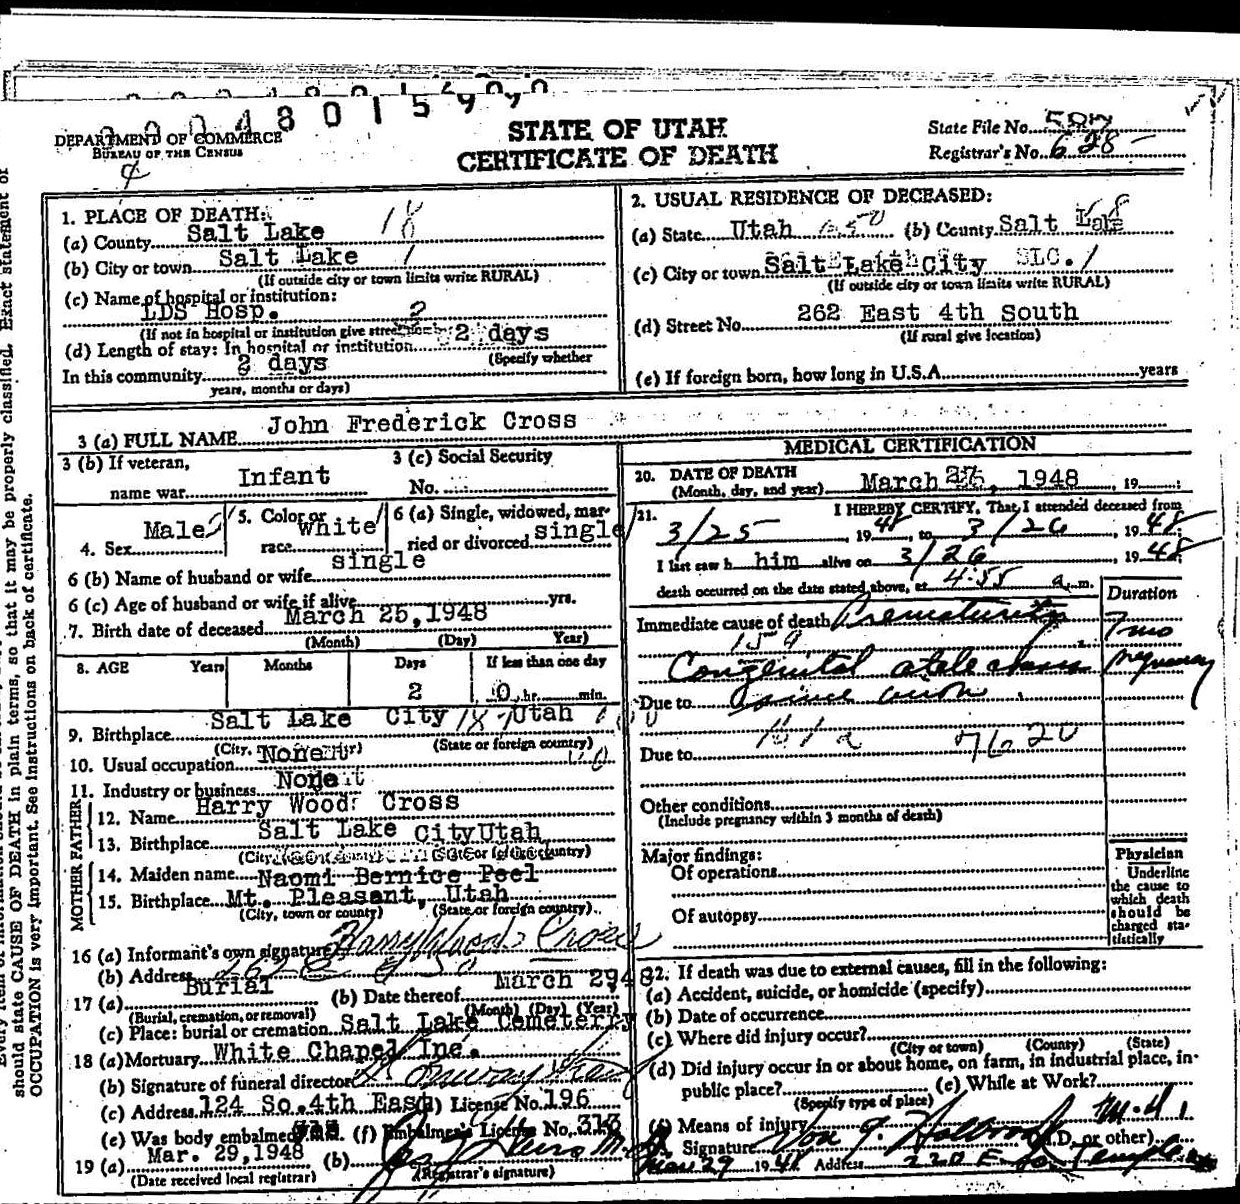 0004801590
DEPARTMENT OF COMMERCE
BUREAU OF THE CENSUS
STATE OF UTAH
CERTIFICATE OF DEATH
State File No.
Registrar's No. 628
1. PLACE OF DEATH:
(a) County Salt Lake 18
(b) City or town Salt Lake 1
(If outside city or town limits write RURAL)
(c) Name of hospital or institution:
LDS Hosp. 2
(If not in hospital or institution give street
(d) Length of stay: In hospital or institution 2 days
(Specify whether
In this community 2 days
years, months or days)
2. USUAL RESIDENCE OF DECEASED:
(a) State Utah (b) County Salt Lake
(c) City or town Salt Lake City SLC. 1
(If outside city or town limits write RURAL)
(d) Street No. 262 East 4th South
(If rural give location)
(e) If foreign born, how long in U.S.A. years
3 (a) FULL NAME John Frederick Cross
3 (b) If veteran,
name war Infant
3 (c) Social Security
No.
4. Sex Male
5. Color or
race White
6 (a) Single, widowed, mar-
ried or divorced single
6 (b) Name of husband or wife single
6 (c) Age of husband or wife if alive yrs.
7. Birth date of deceased March 25, 1948
(Month) (Day) Year)
8. AGE Years Months Days If less than one day
2 0 hr. min.
9. Birthplace Salt Lake City Utah
(City, (State or foreign country)
10. Usual occupation None
11. Industry or business None
FATHER
12. Name Harry Woods Cross
13. Birthplace Salt Lake City Utah
MOTHER
14. Maiden name Naomi Bernice Peel
15. Birthplace Mt. Pleasant, Utah
(City, town or county) (State or foreign country)
16 (a) Informant's own signature Harry Woods Cross
(b) Address 262 E
17 (a) Burial (b) Date thereof March 29 48
(Burial, cremation, or removal) (Month) (Day) (Year)
(c) Place: burial or cremation Salt Lake Cemeterry
18 (a) Mortuary White Chapel Inc.
(b) Signature of funeral director
(c) Address 124 So. 4th East License No. 196
(e) Was body embalmed (f) Embalmer's License No. 313
19 (a) Mar. 29, 1948 (b)
(Date received local registrar) (Registrar's signature)
MEDICAL CERTIFICATION
20. DATE OF DEATH
(Month, day, and year) March 1948, 19
21. I HEREBY CERTIFY, That I attended deceased from
3/25, 1948, to 3/26, 1948
I last saw him alive on 3/26, 1948
death occurred on the date stated above, at 4:55 a.m.
Duration
Immediate cause of death Prematurity 7 mo
159
Congenital atelectasis pregnancy
Due to since birth
161a 7620
Due to
Other conditions
(Include pregnancy within 3 months of death)
Major findings:
Of operations
Of autopsy
Physician
Underline
the cause to
which death
should be
charged sta-
tistically
22. If death was due to external causes, fill in the following:
(a) Accident, suicide, or homicide (specify)
(b) Date of occurrence
(c) Where did injury occur?
(City or town) (County) (State)
(d) Did injury occur in or about home, on farm, in industrial place, in
public place? (e) While at Work?
(Specify type of place)
(f) Means of injury
Signature Von G. Holbrook M.D. (M.D. or other)
Mar 29 1948 Address 220 E. So. Temple
should state CAUSE OF DEATH in plain terms, so that it may be properly classified. Exact statement of
OCCUPATION is very important. See instructions on back of certificate.